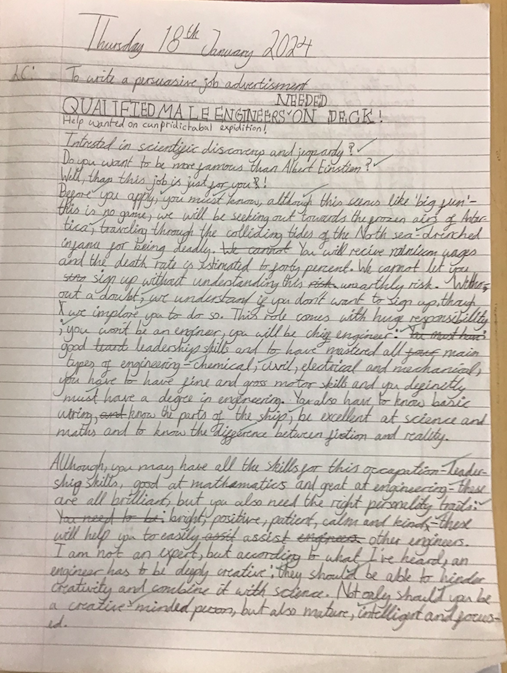 Thursday 18th January 2024
LC: To write a persuasive job advertisment
NEEDED
QUALIFIED MALE ENGINEERS ON DECK!
Help wanted on cunpridictabal expidition!
Intrested in scientific discovery and jeopardy? ✓
Do you want to be more famous than Albert Einstien? ✓
Well, than this job is just for you!
Before you apply, you must know, although this seems like 'big fun'-
this is no game, we will be seeking out towards the frozen airs of Antar-
tica, traveling through the colliding tides of the North sea-drenched
infame for being deadly. We cannot You will recive minimum wages
and the death rate is estimated to forty percent. We cannot let you
sign up without understanding this risk unearthly risk. With-
out a doubt, we understand if you don't want to sign up, though
we implore you to do so. This role comes with huge responsibility
; you won't be an enginer, you will be chief engineer. You must have
good leaderships skills and to have masterd all main
types of engineering-chemical, civil, electrical and mechanical,
you have to have fine and gross motor skills and you definetly
must have a degree in engineering. You also have to know basic
wiring, and know the parts of the ship, be excellent at science and
maths and to know the difference between fiction and reality.
Although, you may have all the skills for this occupation-leader-
ship skills, good at mathematics and great at engineering-these
are all brilliant, but you also need the right personality traits:
You need to be: bright, positive, patient, calm and kind,-these
will help you to easily assist engineers other engineers.
I am not an expert, but according to what I've heard, an
engineer has to be deeply creative; they should be able to hinder
creativity and combine it with science. Not only should you be
a creative minded person, but also mature, intelligent and focus-
ed.